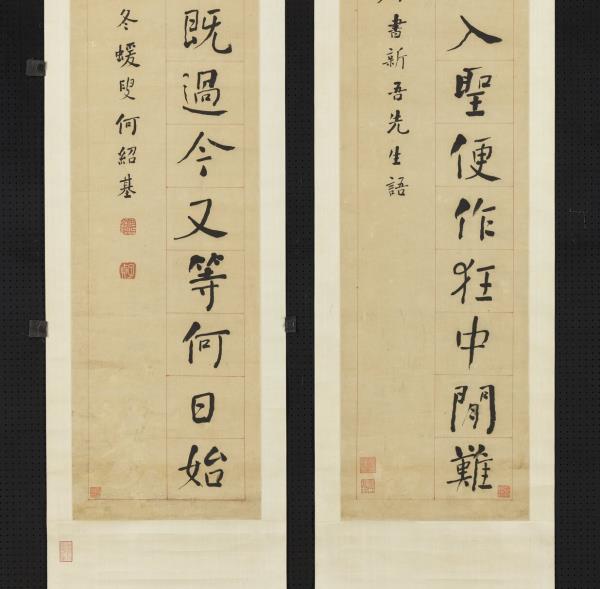 入聖便作狂中間難
書新吾先生語
既過今又等何日始
冬蝯叟何紹基